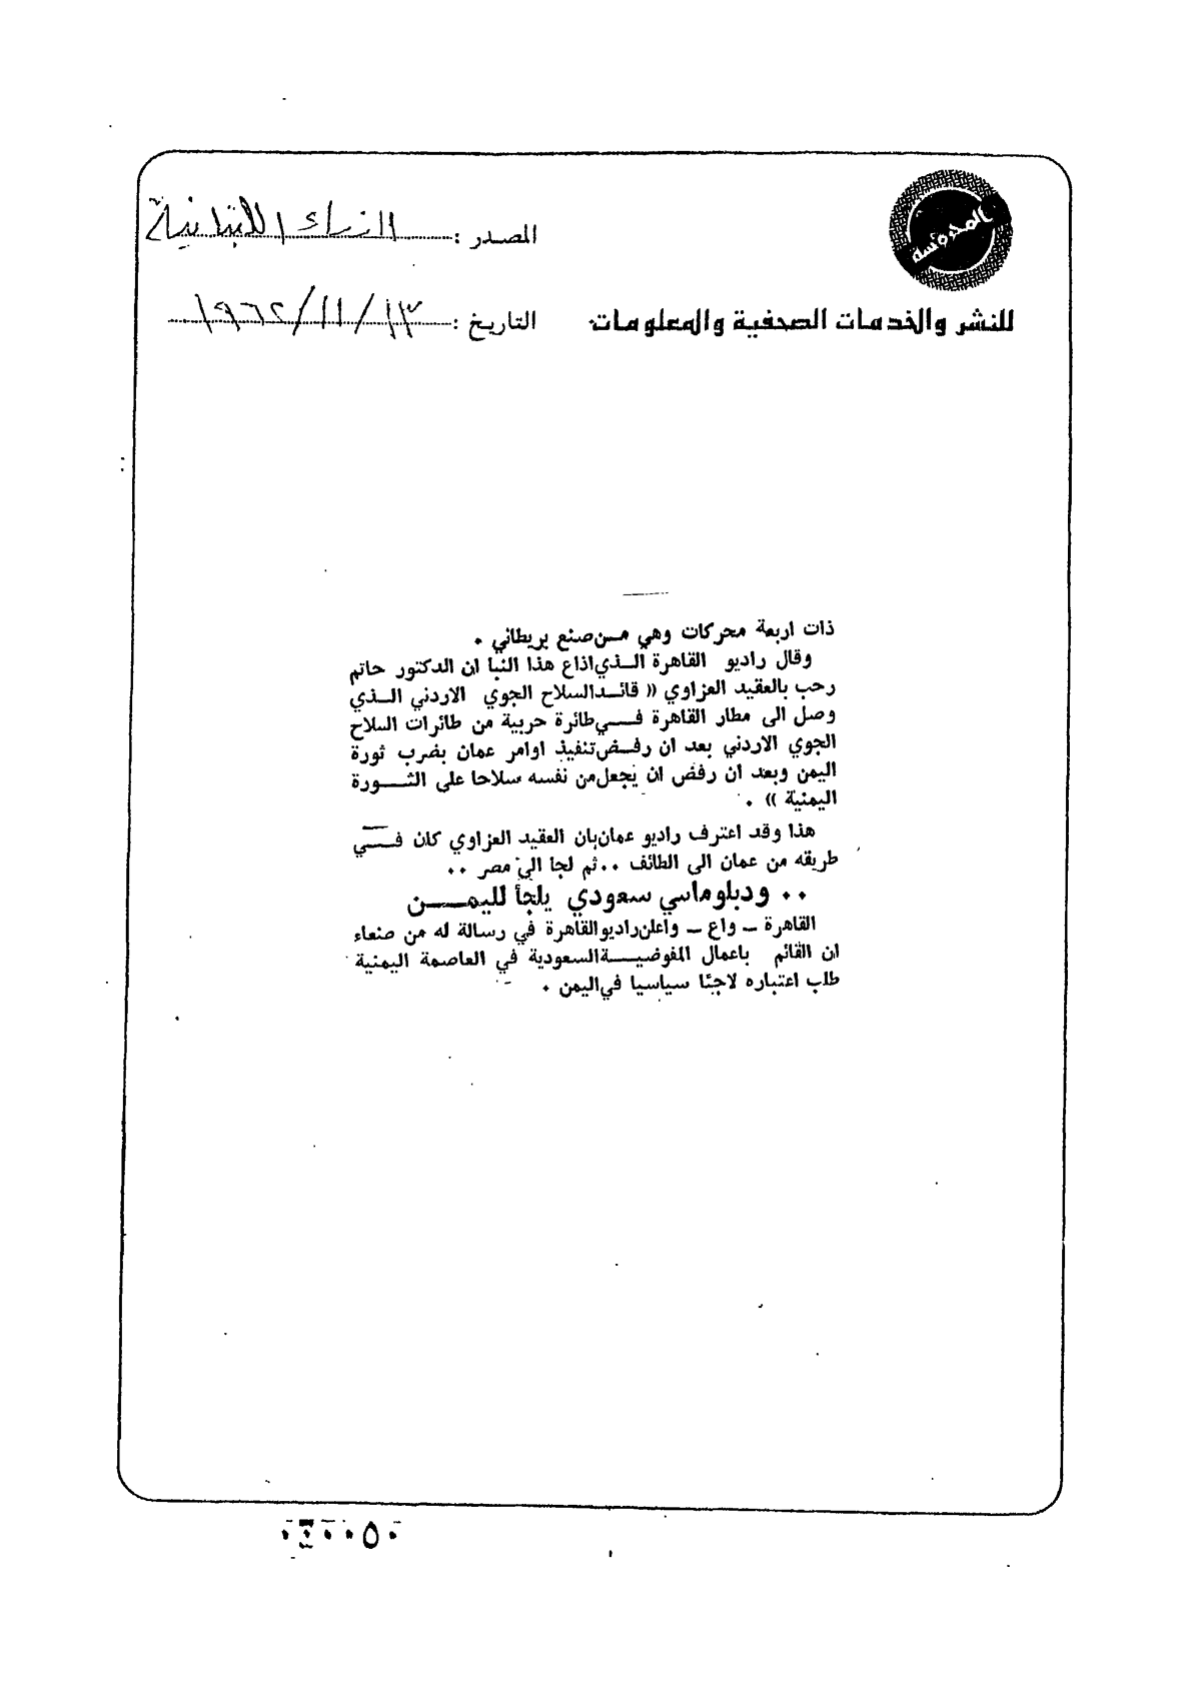 المحروسة
المصدر : اللبنانية
للنشر والخدمات الصحفية والمعلومات
التاريخ : ١٩٦٢/١١/١٣
ذات اربعة محركات وهي من صنع بريطاني .
وقال راديو القاهرة الذي اذاع هذا النبا ان الدكتور حاتم
رحب بالعقيد العزاوي « قائد السلاح الجوي الاردني الذي
وصل الى مطار القاهرة في طائرة حربية من طائرات السلاح
الجوي الاردني بعد ان رفض تنفيذ اوامر عمان بضرب ثورة
اليمن وبعد ان رفض ان يجعل من نفسه سلاحا على الثورة
اليمنية » .
هذا وقد اعترف راديو عمان بان العقيد العزاوي كان في
طريقه من عمان الى الطائف .. ثم لجا الى مصر ..
.. ودبلوماسي سعودي يلجأ لليمن
القاهرة – واع – واعلن راديو القاهرة في رسالة له من صنعاء
ان القائم باعمال المفوضية السعودية في العاصمة اليمنية
طلب اعتباره لاجئا سياسيا في اليمن .